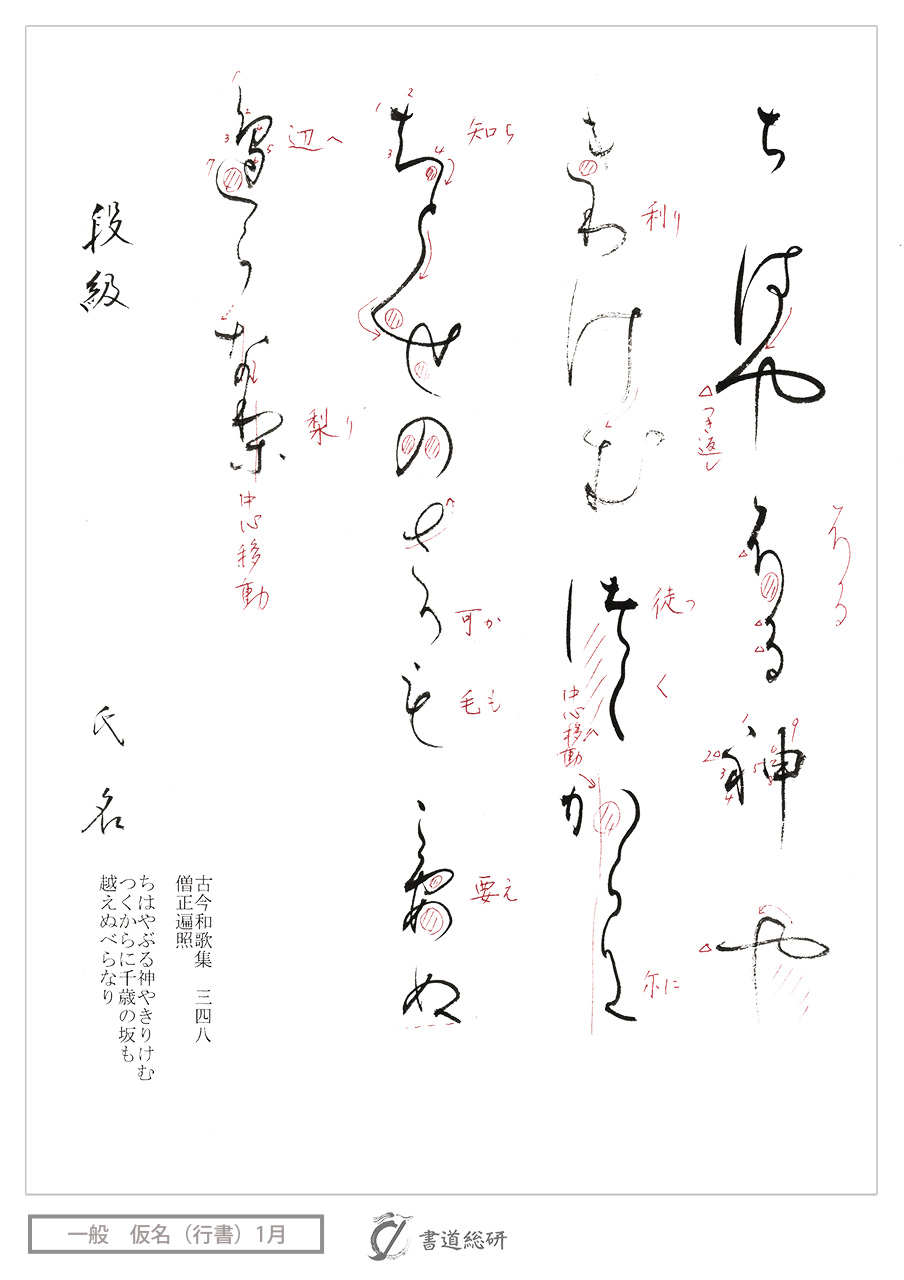 ちはやふる神や
きりけむつくからに
ちとせのさかもこえぬ
へらなり
ふる
つき返し
利り
徒つ
く
中心移動へ
尓に
知ち
可か
毛も
要え
辺へ
梨り
中心移動
段級
氏名
古今和歌集　三四八
僧正遍照
ちはやぶる神やきりけむ
つくからに千歳の坂も
越えぬべらなり
一般　仮名（行書）1月
書道総研